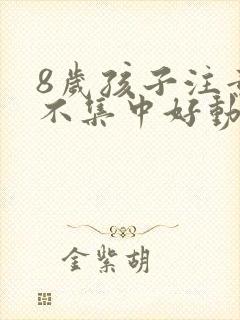 8歲孩子注
不集中好動
金紫胡